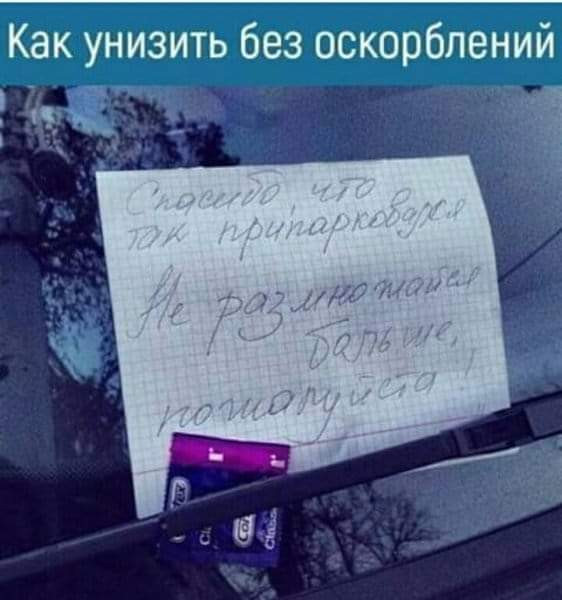 Как унизить без оскорблений
Спасибо, что
так припарковался
Не размножайся
больше,
пожалуйста!
Contex
Classic
Contex
Classic